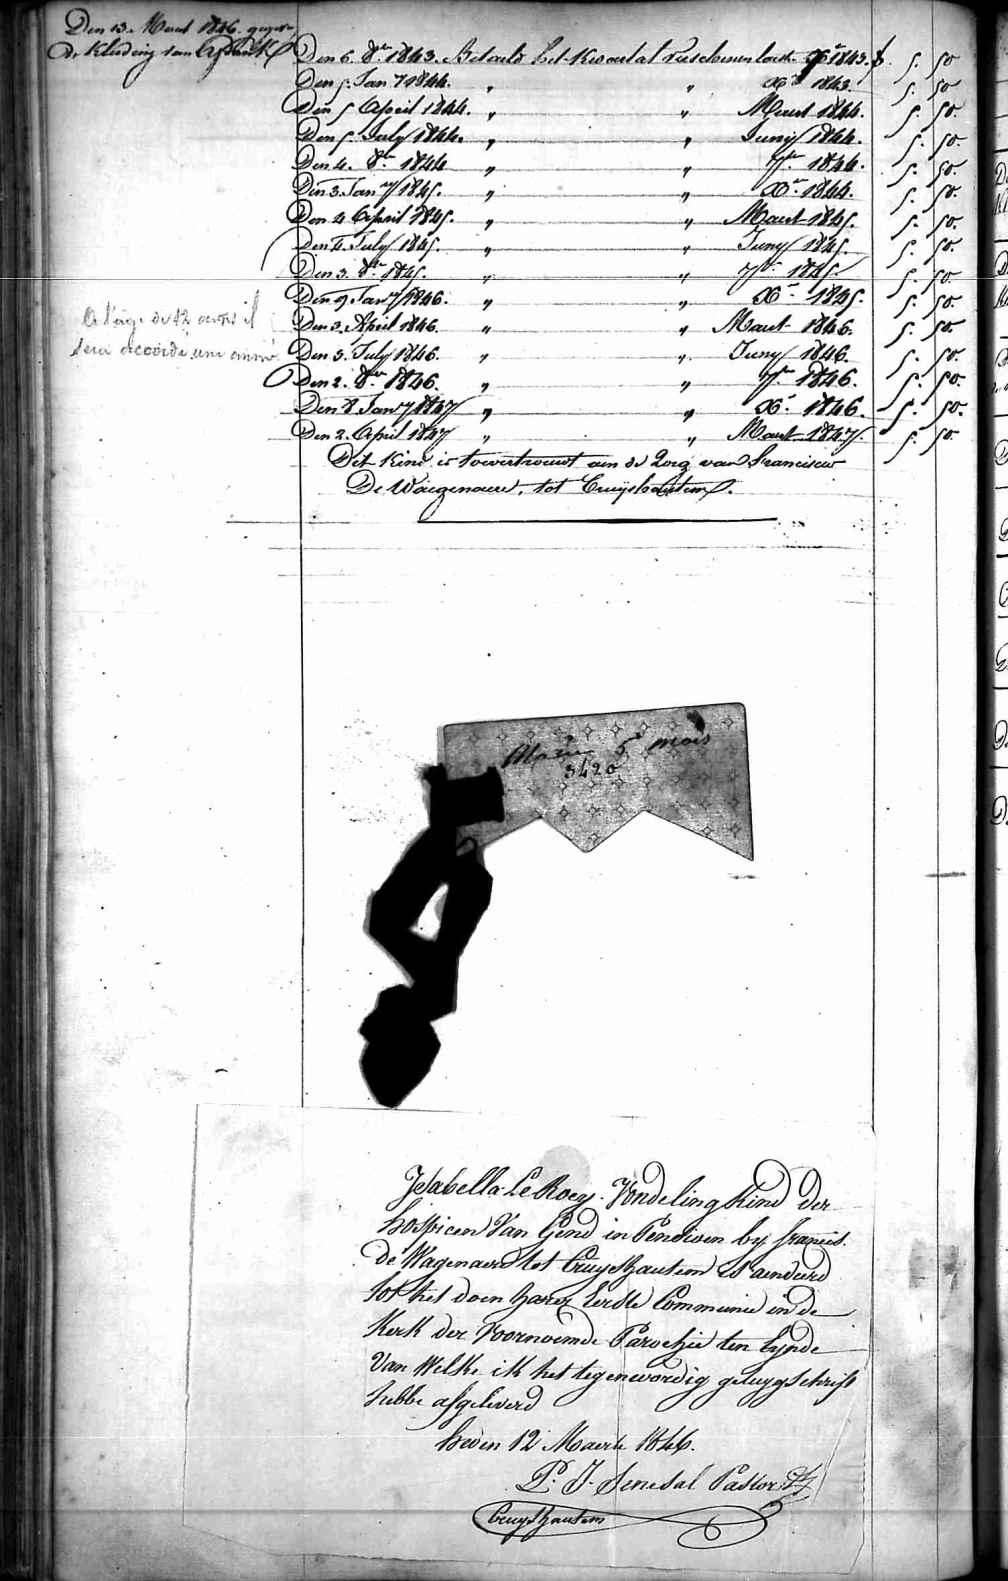 Den 13. Maart 1846.
De Kleeding van
Den 6. 8re 1843. Betaald het kwartaal verschenen 7re 1843. 5. 50
Den 5. Jany 1844. " " Xre 1843. 5. 50.
Den 5 April 1844. " " Maart 1844. 5. 50.
Den 5. July 1844. " " Juny 1844. 5. 50.
Den 4. 8re 1844 " " 7re 1844. 5. 50.
Den 3. Jany 1845. " " Xre 1844. 5. 50.
Den 4 April 1845. " " Maart 1845. 5. 50.
Den 4. July 1845. " " Juny 1845. 5. 50.
Den 3. 8re 1845. " " 7re 1845 5. 50.
Den 9. Jany 1846. " " Xre 1845. 5. 50.
Den 3. April 1846. " " Maart 1846. 5. 50.
Den 3. July 1846. " " Juny 1846 5. 50.
Den 2. 8re 1846. " " 7re 1846. 5. 50.
Den 8 Jany 1847 " " Xre 1846. 5. 50.
Den 2. April 1847 " " Maart 1847. 5. 50.
A l'age de 12 il
sera accordé une
Dit Kind is toevertrouwt aan de Zorg van Franciscus
De Waegenaere, tot Cruyshautem.
5 mois
3420
Isabella LeRoey. Vondeling Kind der
hospicen Van Gend in Pensioen by francis.
de Wagenaere tot Cruyshautem is aenveerd
tot het doen harer Eerste Communie in de
Kerk der Voornoemde Parochie ten Eynde
Van Welke ik het tegenwordig getuygschrift
hebbe afgeleverd
heden 12 Maerte 1846.
P. J. Senesal Pastor
Cruyshautem